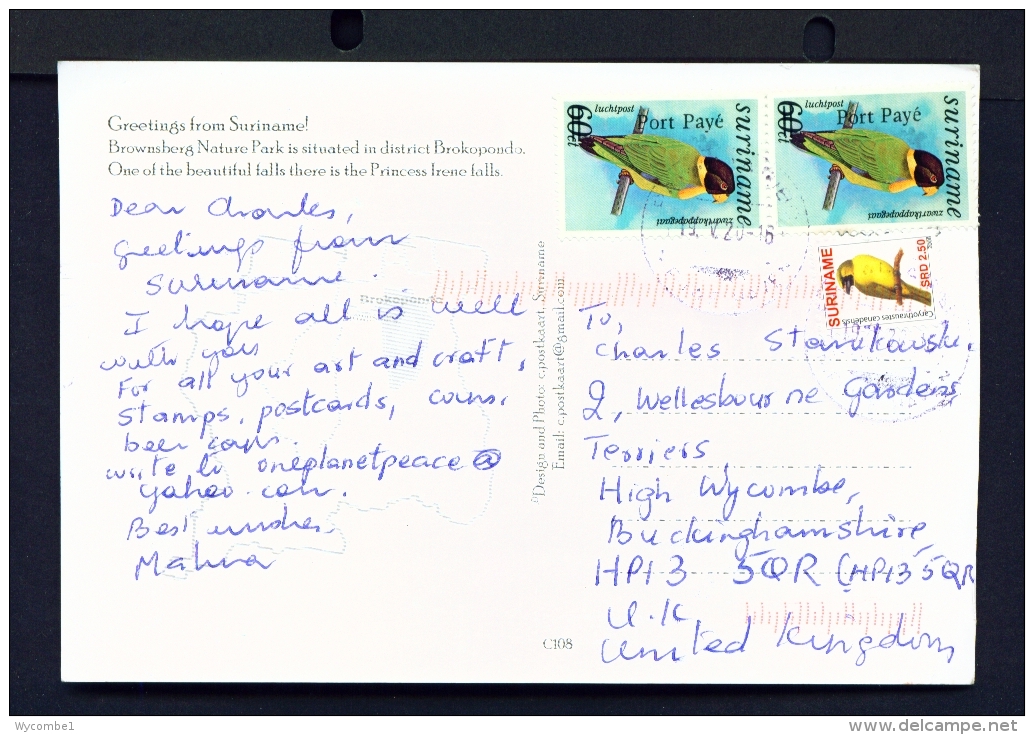 Greetings from Suriname!
Brownsberg Nature Park is situated in district Brokopondo.
One of the beautiful falls there is the Princess Irene falls.
Dear Charles,
Greetings from
Suriname.
I hope all is well
with you
For all your art and craft,
Stamps, postcards, coins,
beer caps.
write to oneplanetpeace@
yahoo.com.
Best wishes,
Brokopondo
©Design and Photo: c.postkaart, Suriname
Email: c.postkaart@gmail.com
C108
60ct
luchtpost
Port Payé
suriname
zwartkappapegaai
60ct
luchtpost
Port Payé
suriname
zwartkappapegaai
19. V. 20-16
SURINAME
SRD 2.50
Caryothraustes canadensis
To,
Charles Stanikowski.
2, Wellesbourne Gardens
Terriers
High Wycombe,
Buckinghamshire,
HP13 5QR (HP13 5QR
U.K,
United Kingdom
Wycombe1
www.delcampe.net